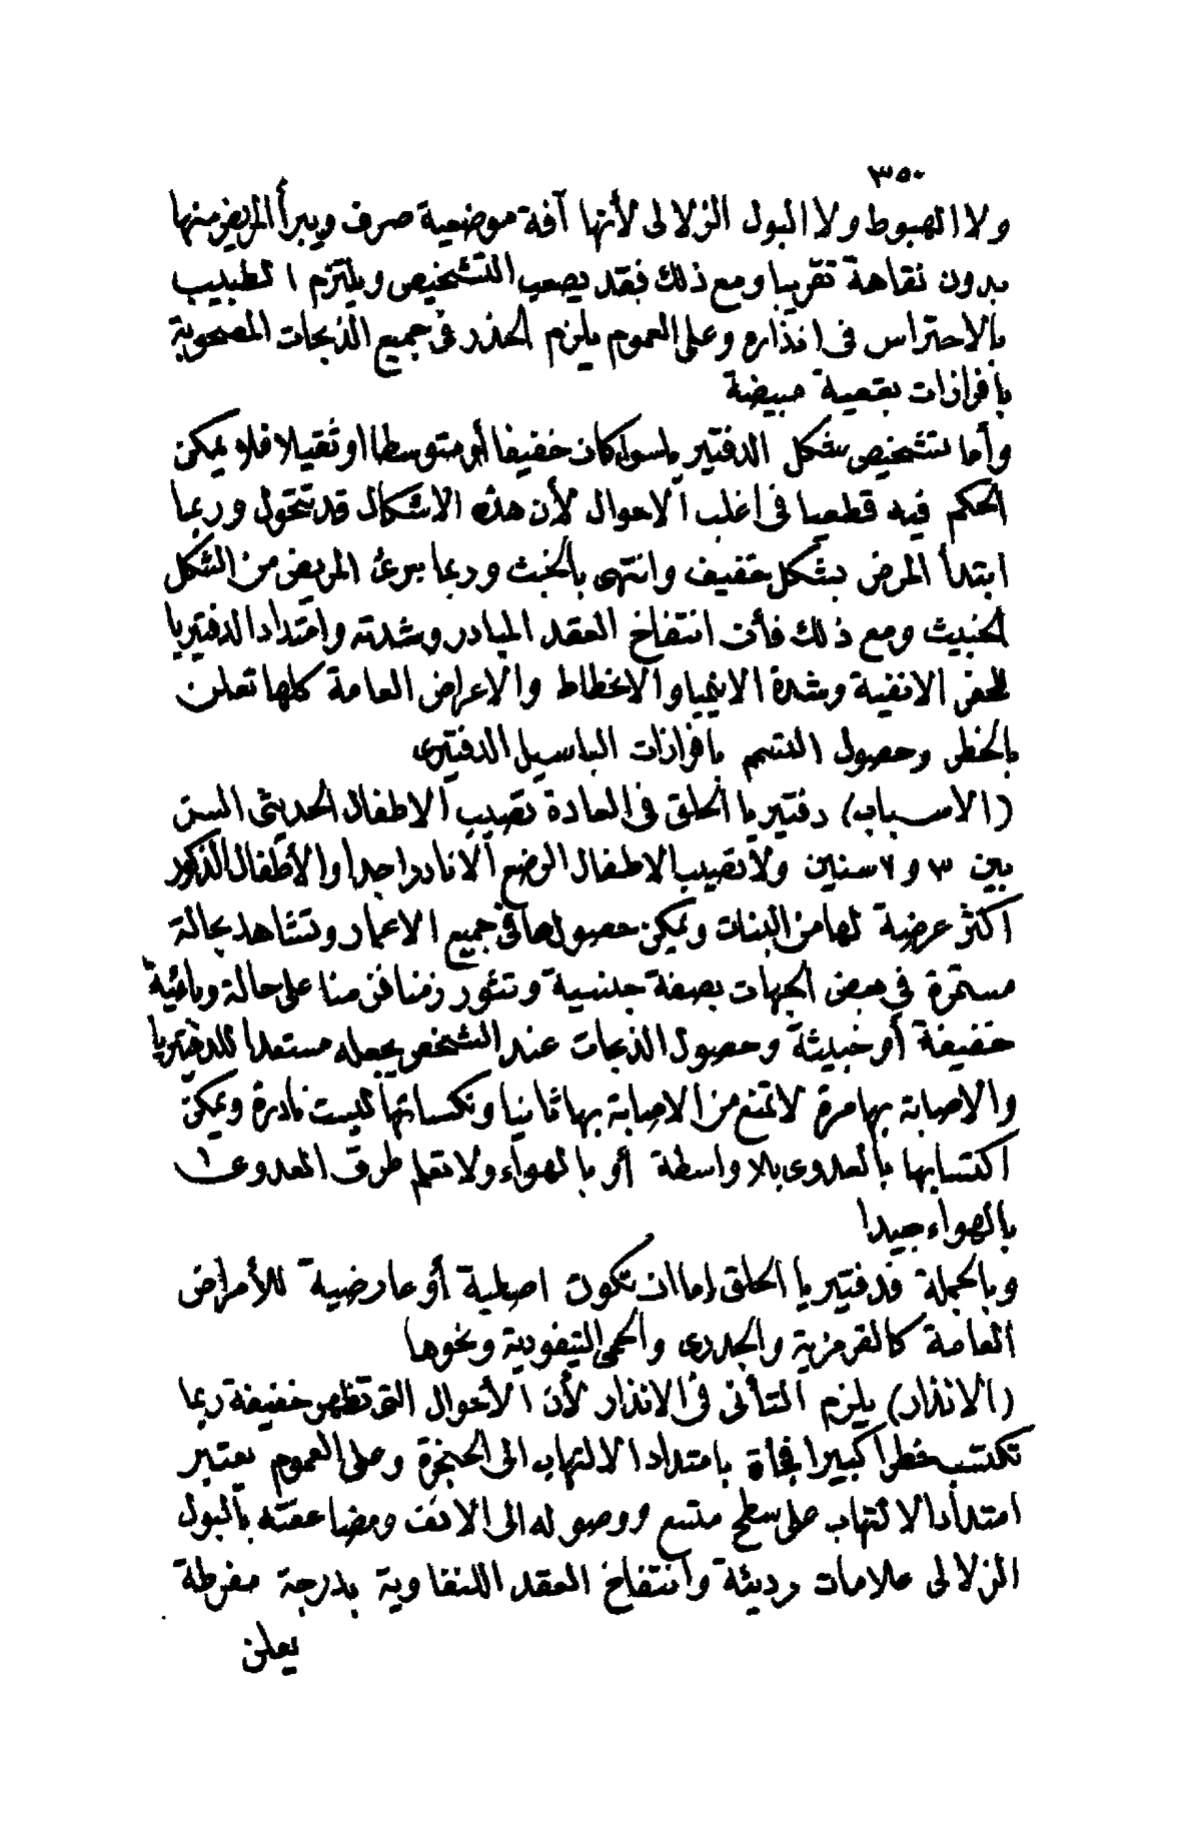 ٣٥٠
ولا الهبوط ولا البول الزلالى لأنها آفة موضعية صرف ويبرأ المريض منها
بدون نقاهة تقريبا ومع ذلك فقد يصعب التشخيص ويلتزم الطبيب
بالاحتراس فى انذاره وعلى العموم يلزم الحذر فى جميع الذبحات المصحوبة
بافرازات بقعية مبيضة
وأما تشخيص شكل الدفتيريا سواء كان خفيفا أو متوسطا او ثقيلا فلا يمكن
الحكم فيه قطعيا فى اغلب الاحوال لأن هذه الاشكال قد تتحول وربما
ابتدأ المرض بشكل خفيف وانتهى بالخبث وربما برئ المريض من الشكل
الخبيث ومع ذلك فأن انتفاخ العقد المبادر وشدته وامتداد الدفتيريا
للحفر الانفية وشدة الانيميا والانحطاط والاعراض العامة كلها تعلن
بالخطر وحصول التسمم بافرازات الباسيل الدفتيرى
(الاسباب) دفتيريا الحلق فى العادة تصيب الاطفال الحديثى السن
بين ٣ و ٧ سنين ولا تصيب الاطفال الرضع الا نادرا جدا والأطفال الذكور
اكثر عرضة لها من البنات ويمكن حصولها فى جميع الاعمار وتشاهد بحالة
مستمرة في بعض الجهات بصفة جنسية وتثور زمنا فزمنا على حالة وبائية
خفيفة أو خبيثة وحصول الذبحات عند الشخص يجعله مستعدا للدفتيريا
والاصابة بها مرة لا تمنع من الاصابة بها ثانيا ونكساتها ليست نادرة ويمكن
اكتسابها بالعدوى بلا واسطة أو بالهواء ولا تعلم طرق العدوى
بالهواء جيدا
وبالجملة فدفتيريا الحلق إما ان تكون اصلية أو عارضية للأمراض
العامة كالقرمزية والجدرى والحمى التيفودية ونحوها
(الانذار) يلزم التأنى فى الانذار لأن الأحوال التى تظهر خفيفة ربما
تكتسب خطرا كبيرا فجأة بامتداد الالتهاب الى الحنجرة وعلى العموم يعتبر
امتداد الالتهاب على سطح متسع ووصوله الى الانف ومضاعفته بالبول
الزلالى علامات رديئة وانتفاخ العقد اللنفاوية بدرجة مفرطة
يعلن